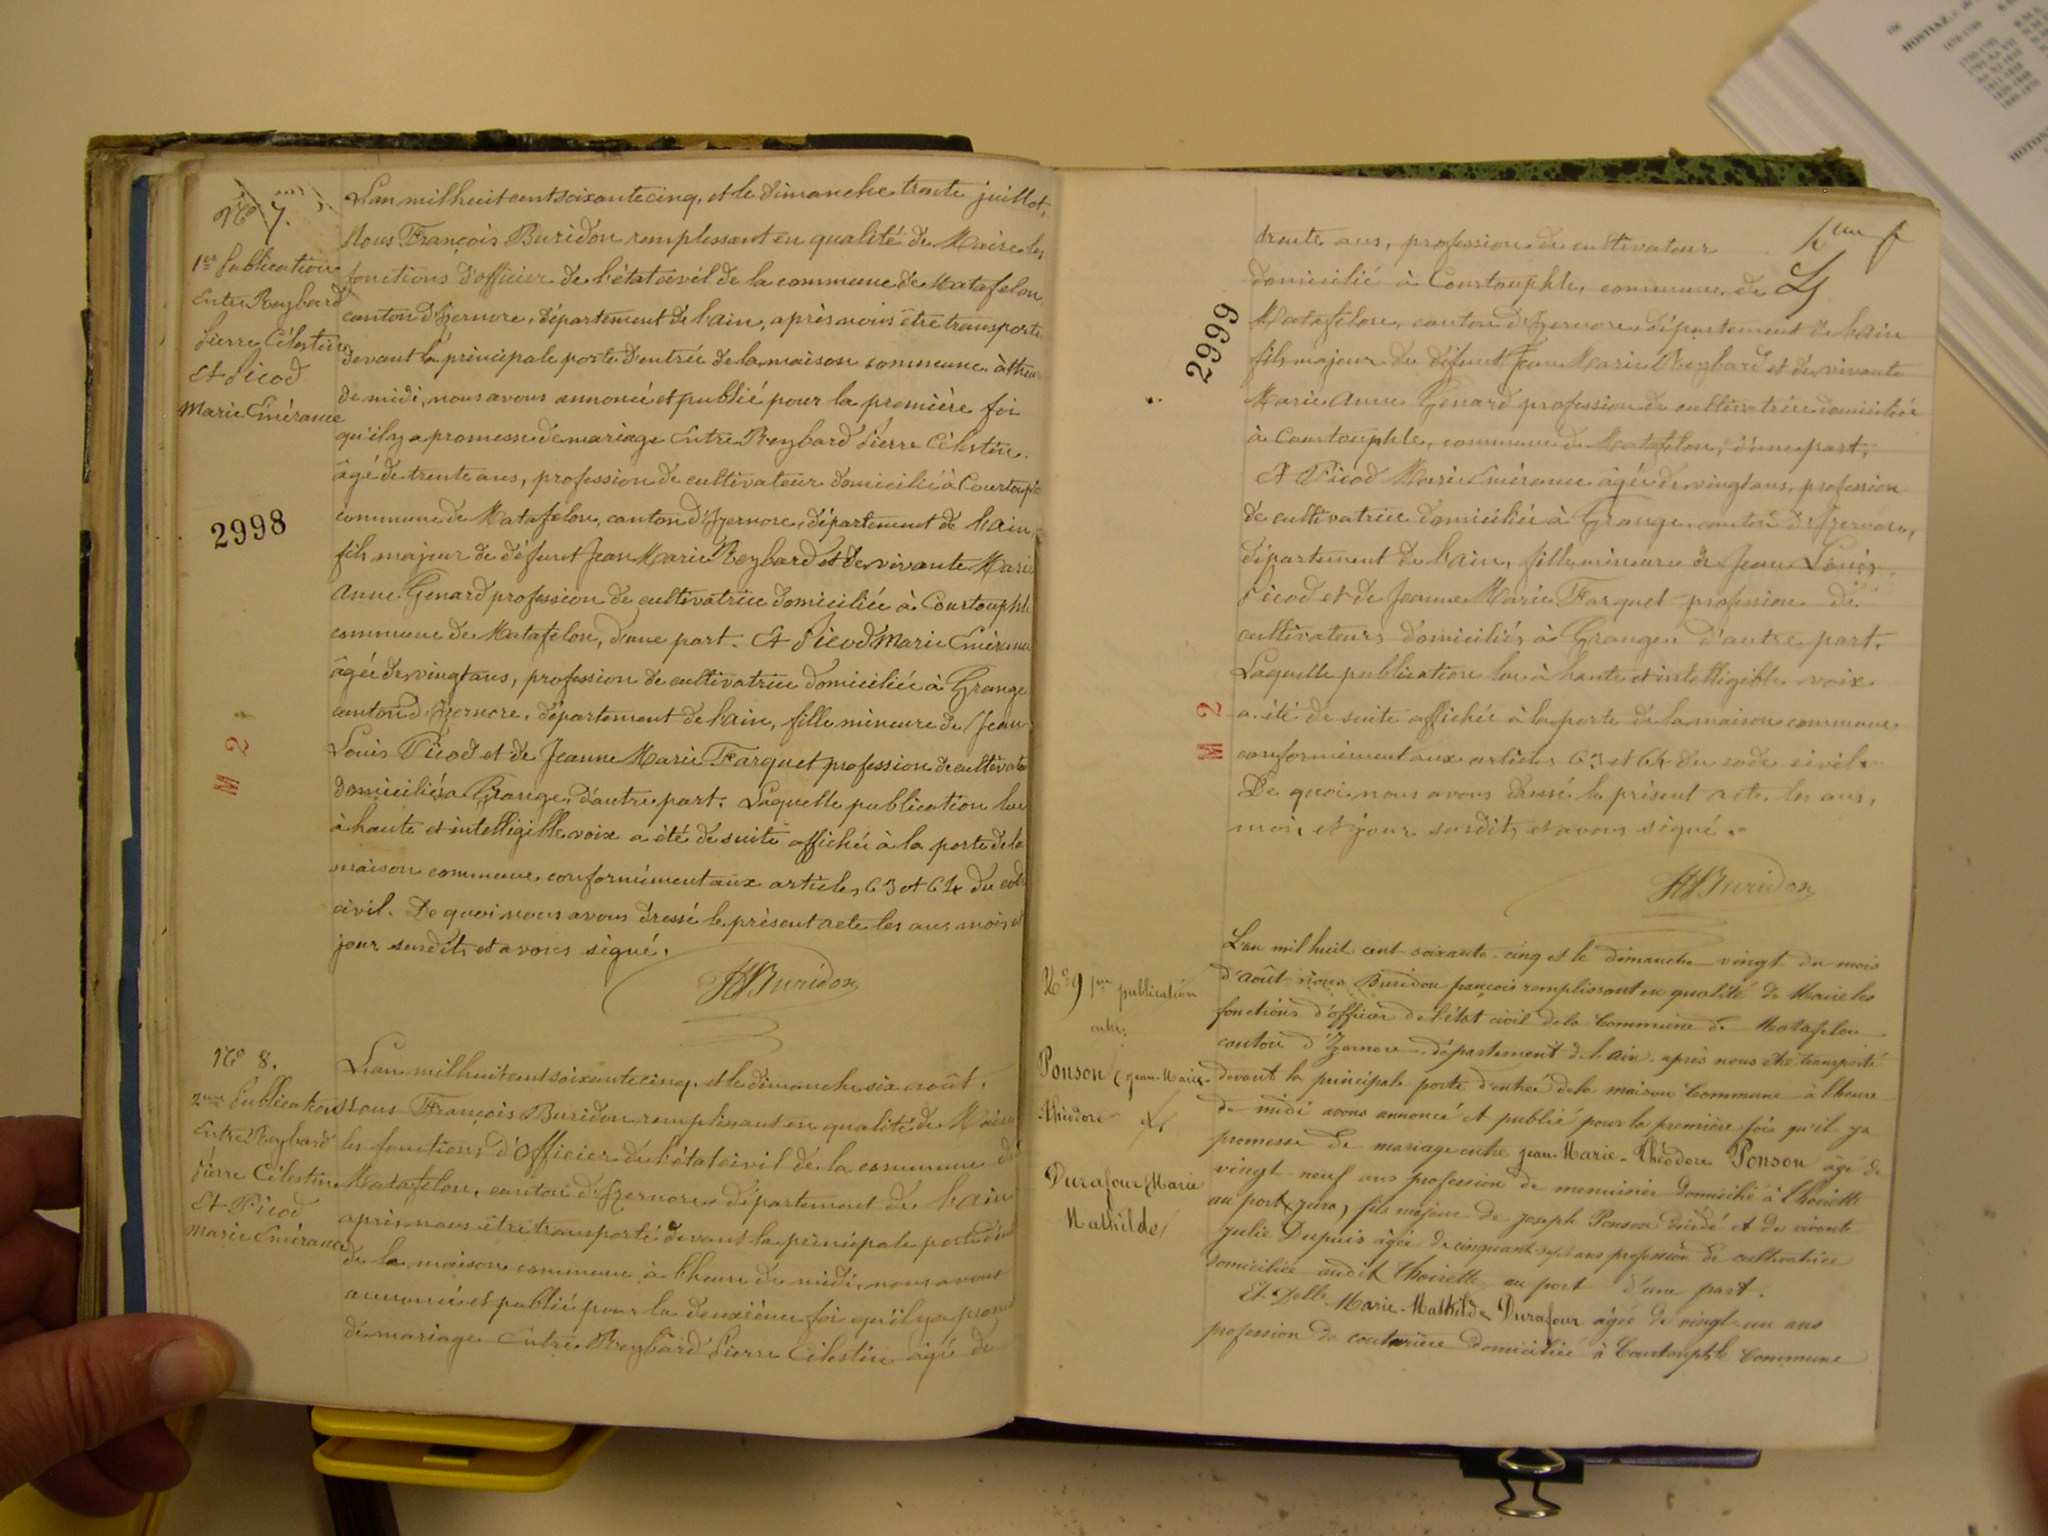 No 7.
1ère Publication
Entre Reybard
Pierre Célestin
Et Picod
Marie Emérance
2998
M 2
L'an mil huit cent soixante cinq, et le dimanche trente juillot,
Nous François Buridon remplessant en qualité de Maire les
fonctions d'officier de l'état civil de la commune de Matafelon
canton d'Izernore, département de l'ain, après nous être transporté
devant la principale porte d'entrée de la maison commune à l'heure
de midi, nous avons annoncé et publié pour la première foi
qu'il y a promesse de mariage Entre Reybard Pierre Célestin
âgé de trente ans, profession de cultivateur domicilié à Courtouphle
commune de Matafelon, canton d'Izernore, département de l'ain
fils majeur de défunt Jean Marie Reybard et de vivante Marie
Anne Genard profession de cultivatrice domiciliée à Courtouphle
commune de Matafelon, d'une part. Et Picod Marie Emérance
âgée de vingt ans, profession de cultivatrice domiciliée à Grange
canton d'Izernore, département de l'ain, fille mineure de Jean
Louis Picod et de Jeanne Marie Farguet profession de cultivate
domiciliés à Grange, d'autre part. Laquelle publication lue
à haute et intelligible voix a été de suite affichée à la porte de la
maison commune conformément aux articles 63 et 64 du code
civil. De quoi nous avons dressé le présent acte les ans, mois et
jour susdits et avons signé.
Buridon
No 8.
2me Publication
Entre Reybard
Pierre Célestin
Et Picod
Marie Emérance
L'an mil huit cent soixante cinq, et le dimanche six août,
Nous François Buridon remplissant en qualité de Maire
les fonctions d'Officier de l'état civil de la commune de
Matafelon, canton d'Izernore département de l'ain
après nous être transporté devant la principale porte d'ent
de la maison commune à l'heure de midi, nous avons
annoncé et publié pour la deuxième foi qu'il y a prom
de mariage Entre Reybard Pierre Célestin âgé de
trente ans, profession de cultivateur
domicilié à Courtouphle, commune de
Matafelon, canton d'Izernore, département de l'ain
fils majeur de défunt Jean Marie Reybard et de vivante
Marie Anne Genard profession de cultivatrice domiciliée
à Courtouphle, commune de Matafelon, d'une part,
Et Picod Marie Emérance âgée de vingt ans, profession
de cultivatrice domiciliée à Grange canton d'Izernore,
département de l'ain, fille mineure de Jean Louis
Picod et de Jeanne Marie Farguet profession de
cultivateurs domiciliés à Granges d'autre part.
Laquelle publication lue à haute et intelligible voix
a été de suite affichée à la porte de la maison commune
conformément aux articles 63 et 64 du code civil.
De quoi nous avons dressé le présent acte, les ans,
mois, et jour susdits et avons signé.
Buridon
2999
M 2
No 9 1ère publication
entre
Ponson Jean-Marie-
théodore &
Durafour Marie
Mathilde
L'an mil huit cent soixante-cinq et le dimanche vingt du mois
d'août nous Buridon françois remplissant en qualité de Maire les
fonctions d'officier de l'état civil de la Commune de Matafelon
canton d'Izernore département de l'ain, après nous être transporté
devant la principale porte d'entrée de la maison Commune à l'heure
de midi avons annoncé et publié pour la première fois qu'il y a
promesse de mariage entre jean-Marie-théodore Ponson âgé de
vingt-neuf ans profession de menuisier domicilié à thoirette
au port, jura, fils majeur de joseph Ponson décédé et de vivante
julie Dupuis âgée de cinquante-sept ans profession de cultivatrice
domiciliée audit thoirette au port d'une part.
Et Delle Marie-Mathilde Durafour âgée de vingt-un ans
profession de couturière domiciliée à Courtouphle Commune